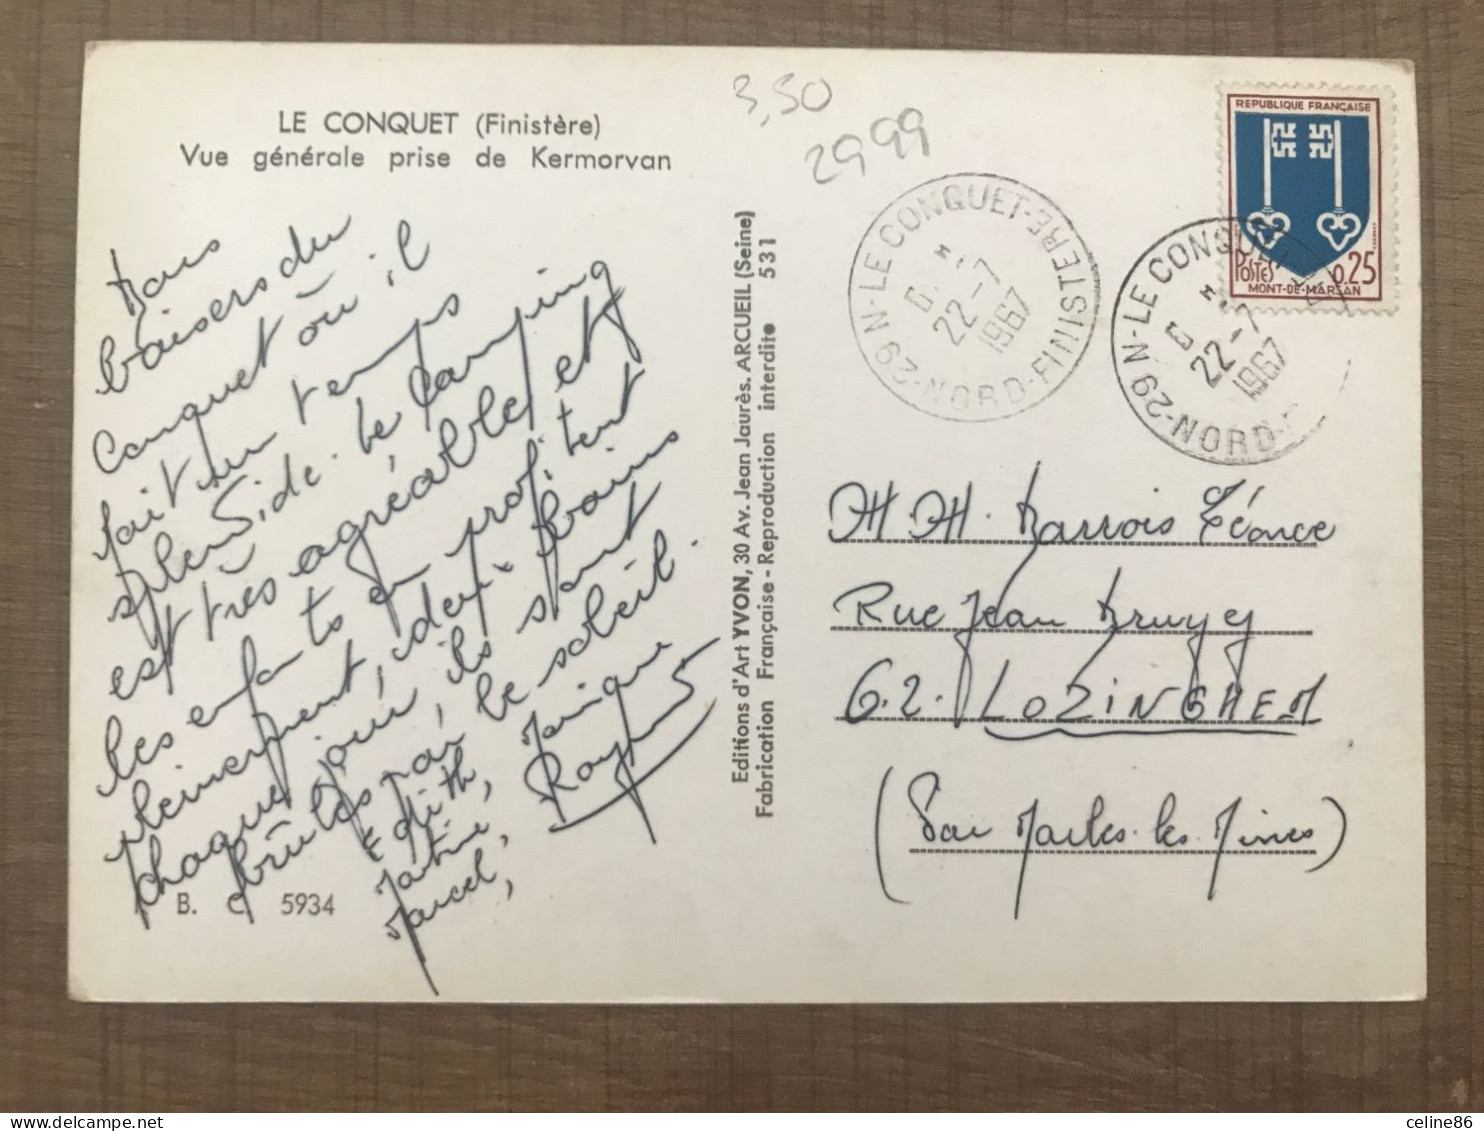 LE CONQUET (Finistère)
Vue générale prise de Kermorvan
baisers du
Conquet où il
fait un temps
splendide. Le Camping
est très agréable et
les enfants en profitent
pleinement, deux bains
chaque jour, ils sont
brûlés par le soleil.
Edith, Monique
Martine, Raymond
Marcel,
B. C. 5934
Editions d'Art YVON, 30 Av. Jean Jaurès. ARCUEIL (Seine)
Fabrication Française - Reproduction interdite 531
3,50
2999
LE CONQUET-29 N-NORD-FINISTERE
22-7
1967
LE CONQUET-29 N-NORD-
22-7
1967
REPUBLIQUE FRANÇAISE
POSTES 0,25
MONT-DE-MARSAN
M. M. Barrois Léonce
Rue Jean
62. LOZINGHEM
(Par Marles les Mines)
celine86